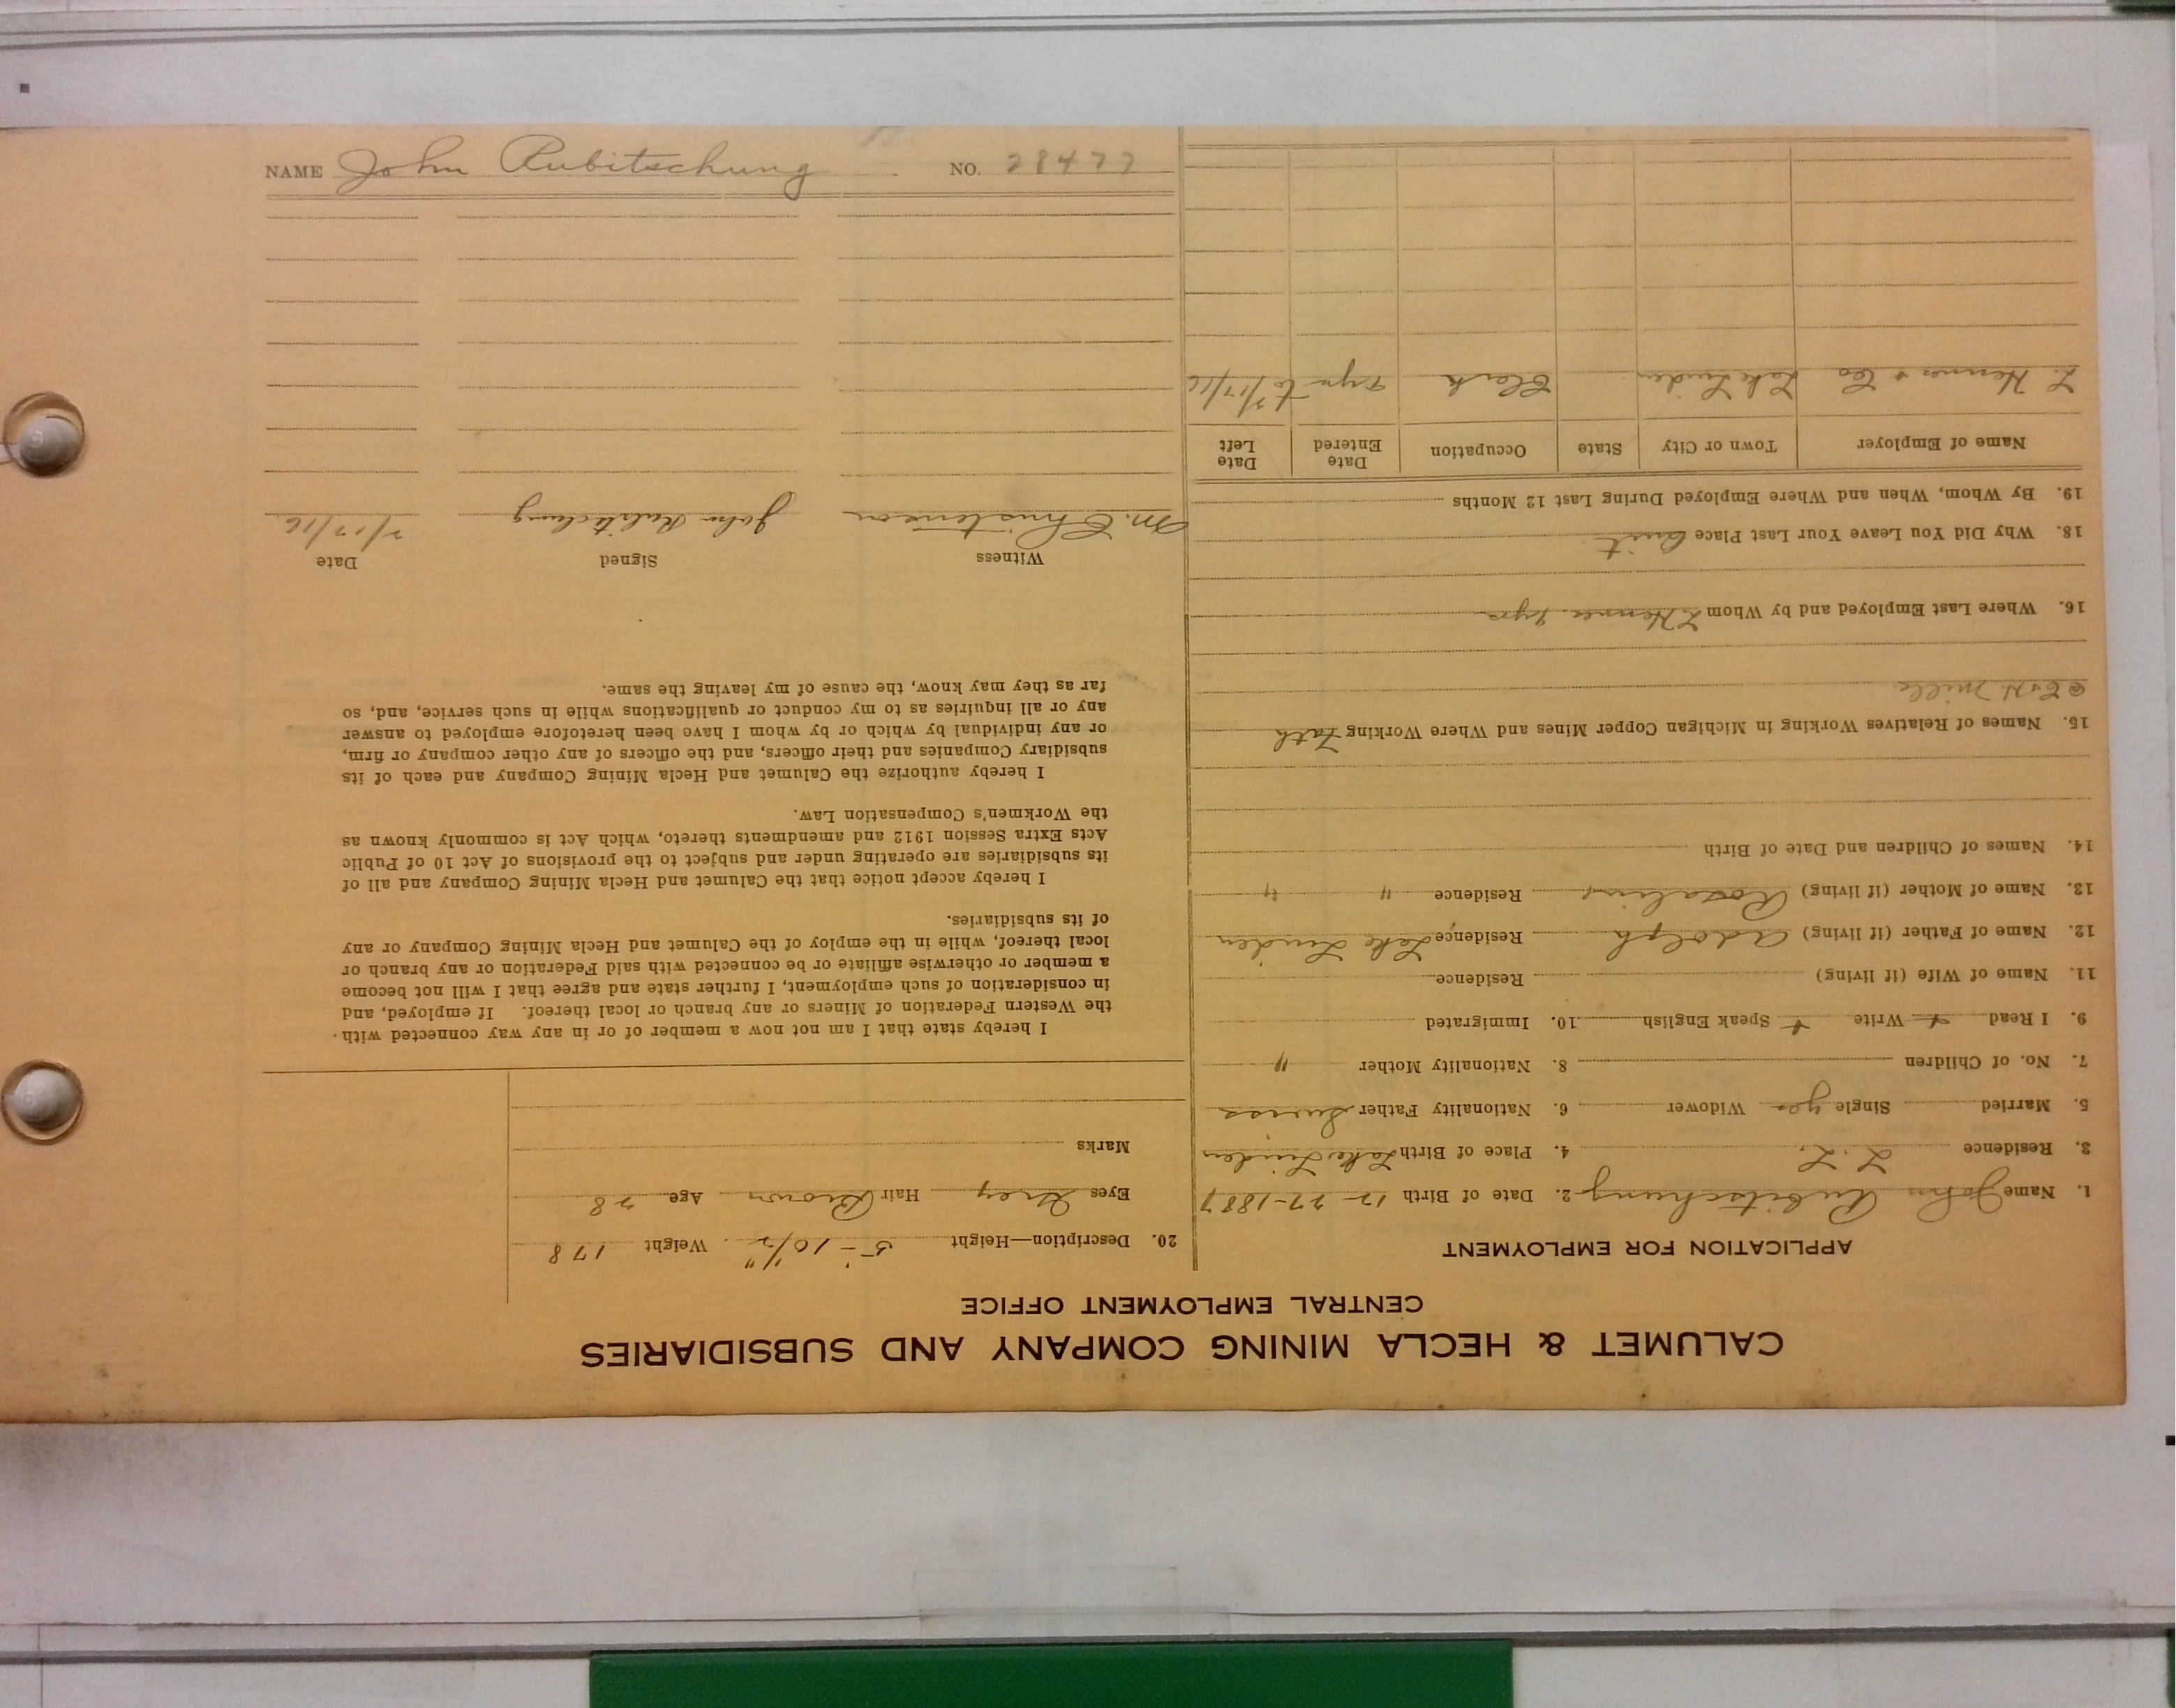 CALUMET & HECLA MINING COMPANY AND SUBSIDIARIES
CENTRAL EMPLOYMENT OFFICE
APPLICATION FOR EMPLOYMENT
1. Name John Rubitschung 2. Date of Birth 12-27-1887
3. Residence L. L. 4. Place of Birth Lake Linden
5. Married Single yes Widower 6. Nationality Father Swiss
7. No. of Children 8. Nationality Mother "
9. I Read Write Speak English 10. Immigrated
11. Name of Wife (if living) Residence
12. Name of Father (if living) Adolph Residence Lake Linden
13. Name of Mother (if living) Residence " "
14. Names of Children and Date of Birth
15. Names of Relatives Working in Michigan Copper Mines and Where Working Fath
@ C & H Mills.
16. Where Last Employed and by Whom
18. Why Did You Leave Your Last Place Quit
19. By Whom, When and Where Employed During Last 12 Months
Name of Employer Town or City State Occupation Date Entered Date Left
Lake Linden Clerk to 7/17/16
20. Description—Height 5'-10 1/2" Weight 178
Eyes Grey Hair Brown Age 28
Marks
I hereby state that I am not now a member of or in any way connected with
the Western Federation of Miners or any branch or local thereof. If employed, and
in consideration of such employment, I further state and agree that I will not become
a member or otherwise affiliate or be connected with said Federation or any branch or
local thereof, while in the employ of the Calumet and Hecla Mining Company or any
of its subsidiaries.
I hereby accept notice that the Calumet and Hecla Mining Company and all of
its subsidiaries are operating under and subject to the provisions of Act 10 of Public
Acts Extra Session 1912 and amendments thereto, which Act is commonly known as
the Workmen's Compensation Law.
I hereby authorize the Calumet and Hecla Mining Company and each of its
subsidiary Companies and their officers, and the officers of any other company or firm,
or any individual by which or by whom I have been heretofore employed to answer
any or all inquiries as to my conduct or qualifications while in such service, and, so
far as they may know, the cause of my leaving the same.
Witness Signed Date
M. Christenson John Rubitschung 7/17/16
NAME John Rubitschung NO. 28477